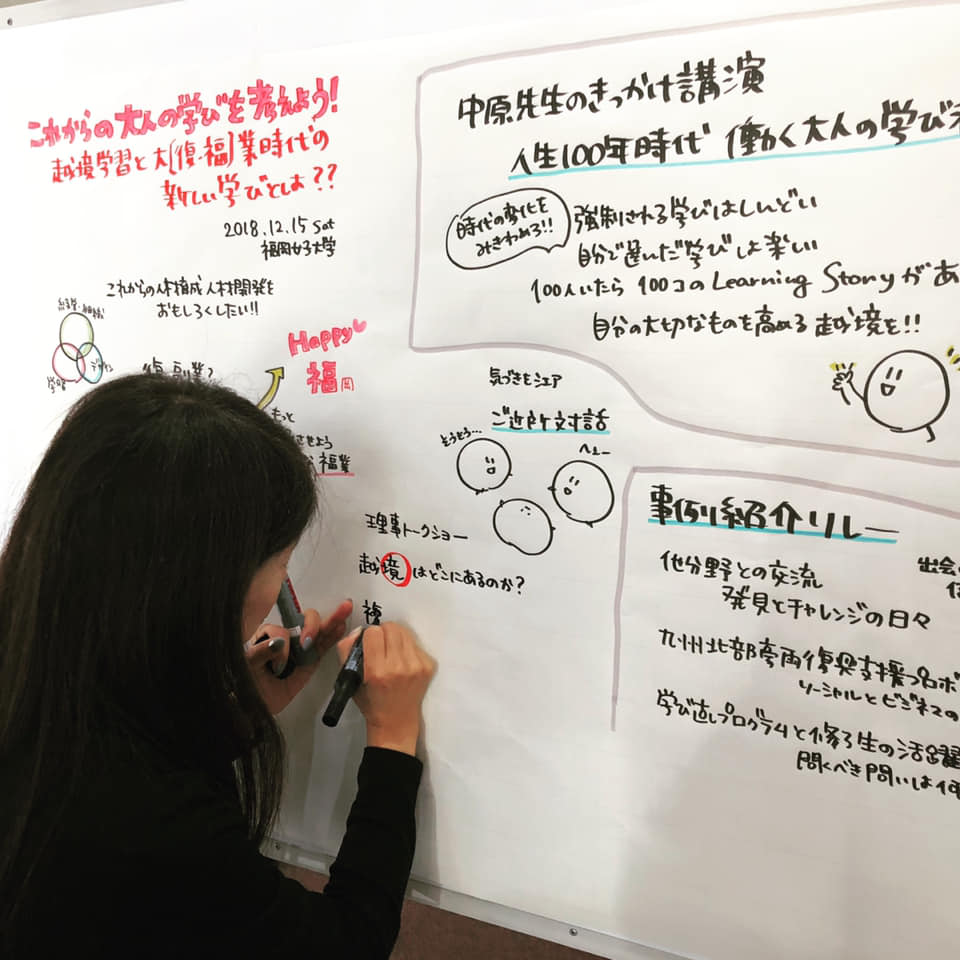 これからの大人の学びを考えよう!
越境学習と大[復・福]業時代の
新しい学びとは??
2018.12.15 Sat
福岡女子大学
これからの人材育成人材開発を
おもしろくしたい!!
デザイン
Happy
福岡
もっと
させよう
福業
中原先生のきっかけ講演
人生100年時代 働く大人の学び
時代の変化を
みきわめろ!!
強制される学びはしんどい
自分で選んだ学びは楽しい
100人いたら 100コのLearning Storyがあ
自分の大切なものを高める越境を!!
気づきをシェア
ご近所対話
そうそう…
へぇー
理事トークショー
越境はどこにあるのか?
複
事例紹介リレー
他分野との交流
発見とチャレンジの日々
出会
九州北部豪雨復興支援プロボ
ソーシャルとビジネスの
学び直しプログラムと修了生の活躍
問くべき問いは何